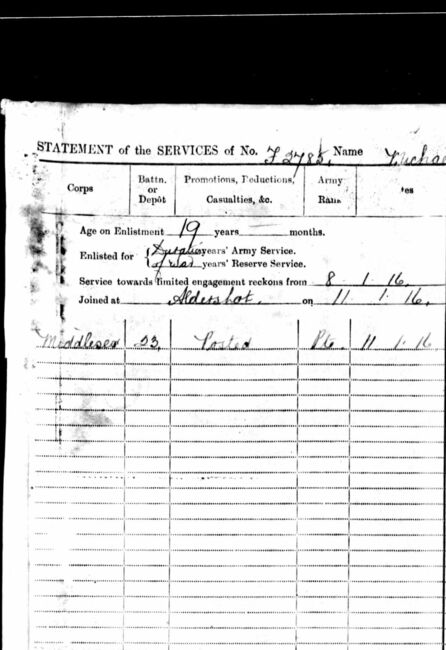 STATEMENT of the SERVICES of No. F 2785, Name Michae
Corps
Battn. or Depôt
Promotions, Reductions, Casualties, &c.
Army Rank
Age on Enlistment 19 years months.
Enlisted for Duration years' Army Service.
of War years' Reserve Service.
Service towards limited engagement reckons from 8 1 16.
Joined at Aldershot. on 11 1 16.
Middlesex 23. Posted Pte. 11 1 16